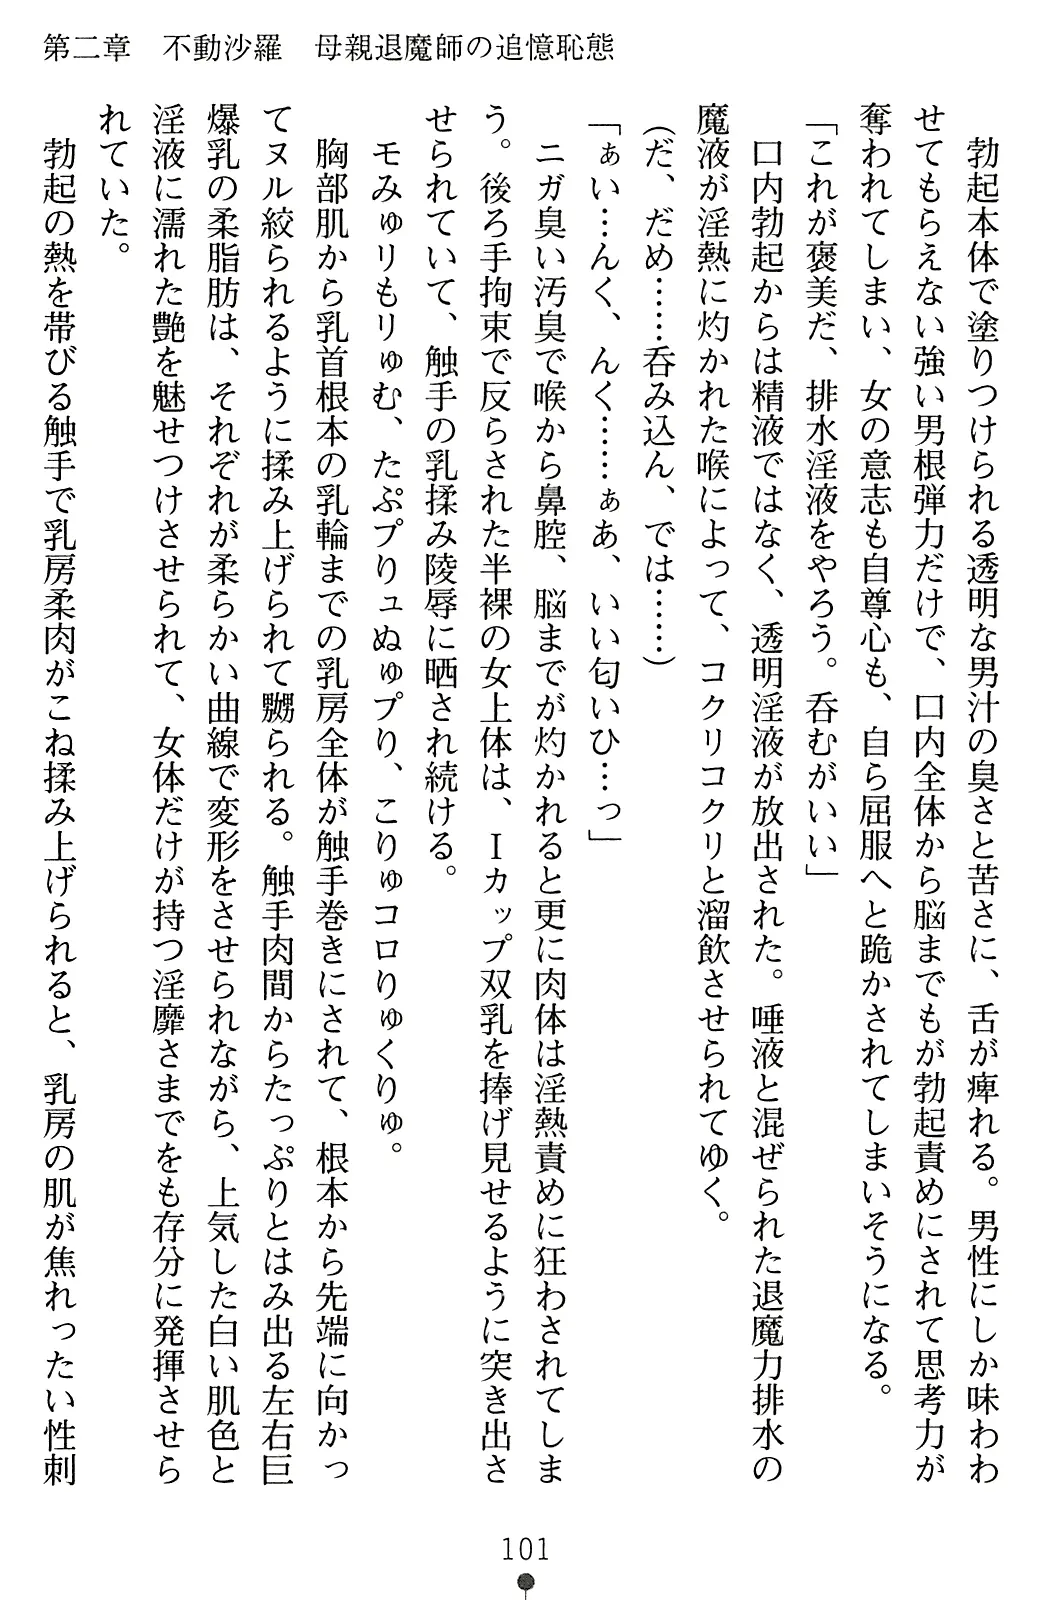 第二章　不動沙羅　母親退魔師の追憶恥態
　勃起本体で塗りつけられる透明な男汁の臭さと苦さに、舌が痺れる。男性にしか味わわ
せてもらえない強い男根弾力だけで、口内全体から脳までもが勃起責めにされて思考力が
奪われてしまい、女の意志も自尊心も、自ら屈服へと跪かされてしまいそうになる。
「これが褒美だ、排水淫液をやろう。呑むがいい」
　口内勃起からは精液ではなく、透明淫液が放出された。唾液と混ぜられた退魔力排水の
魔液が淫熱に灼かれた喉によって、コクリコクリと溜飲させられてゆく。
(だ、だめ……呑み込ん、では……)
「ぁい…んく、んく……ぁあ、いい匂いひ…っ」
　ニガ臭い汚臭で喉から鼻腔、脳までが灼かれると更に肉体は淫熱責めに狂わされてしま
う。後ろ手拘束で反らされた半裸の女上体は、Ｉカップ双乳を捧げ見せるように突き出さ
せられていて、触手の乳揉み陵辱に晒され続ける。
　モみゅリもリゅむ、たぷプりュぬゅプり、こりゅコロりゅくりゅ。
　胸部肌から乳首根本の乳輪までの乳房全体が触手巻きにされて、根本から先端に向かっ
てヌル絞られるように揉み上げられて嬲られる。触手肉間からたっぷりとはみ出る左右巨
爆乳の柔脂肪は、それぞれが柔らかい曲線で変形をさせられながら、上気した白い肌色と
淫液に濡れた艶を魅せつけさせられて、女体だけが持つ淫靡さまでをも存分に発揮させら
れていた。
　勃起の熱を帯びる触手で乳房柔肉がこね揉み上げられると、乳房の肌が焦れったい性刺
101